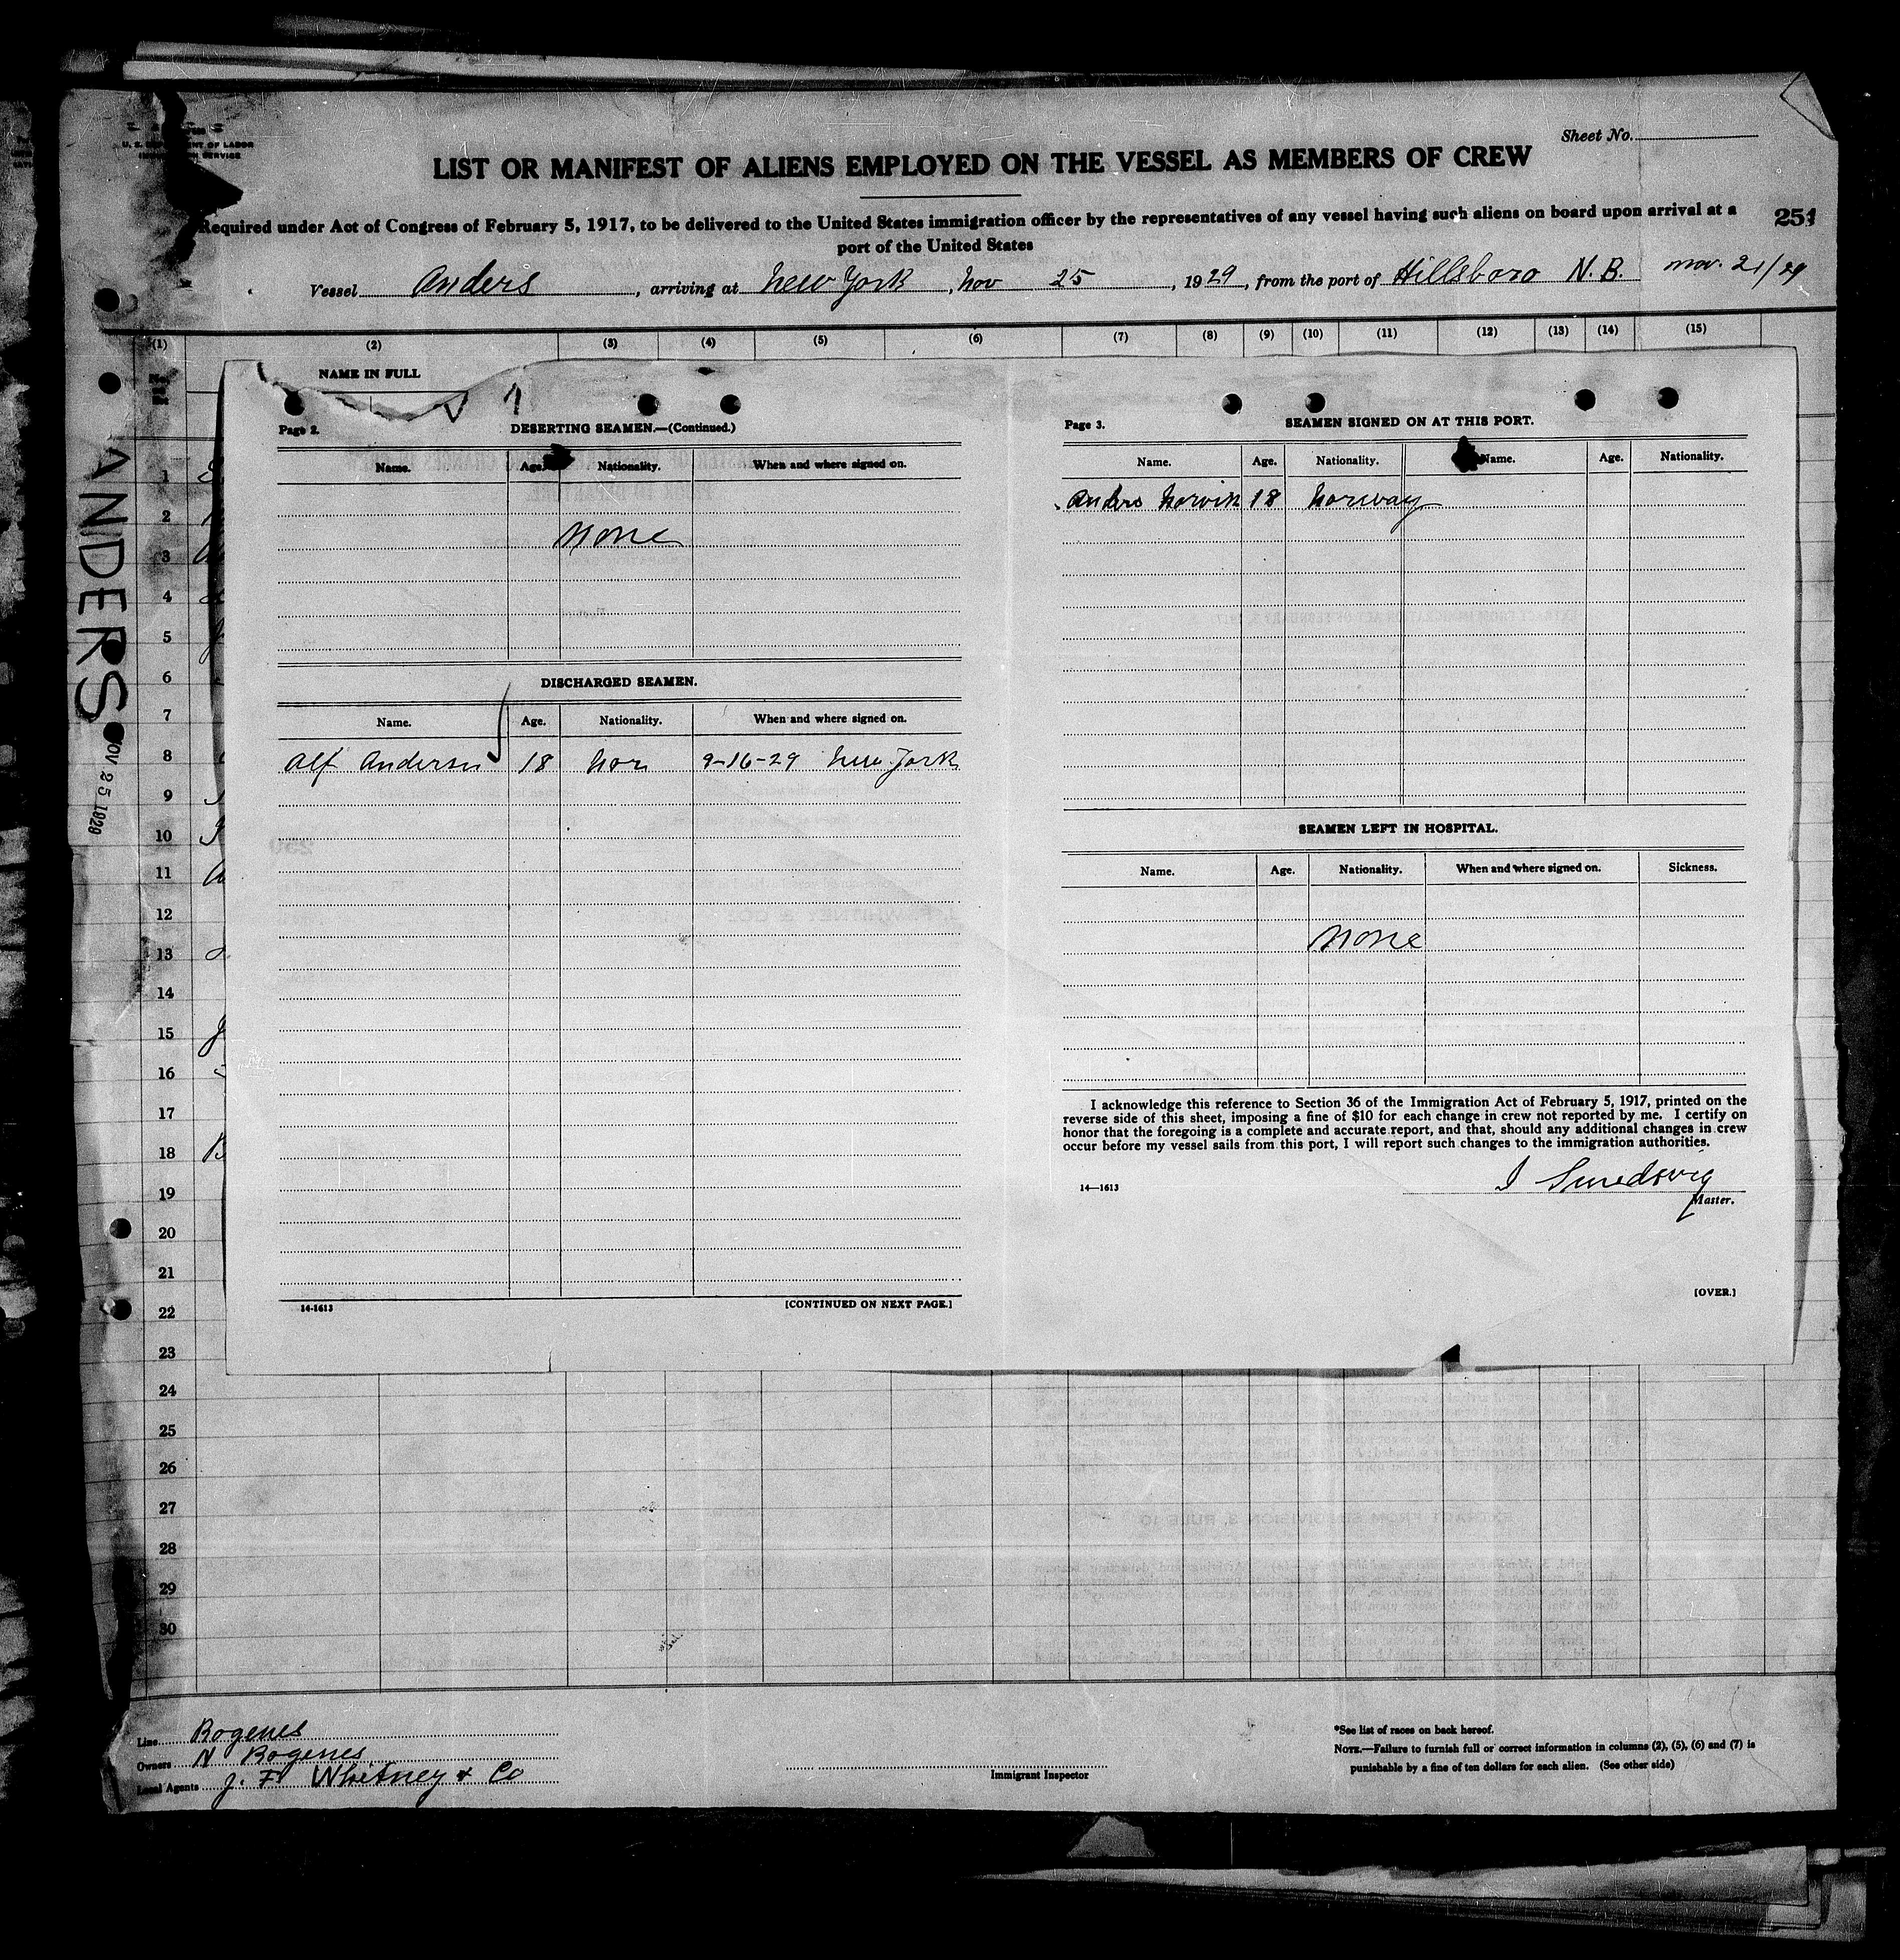 U. S. DEPARTMENT OF LABOR
IMMIGRATION SERVICE
Sheet No.
LIST OR MANIFEST OF ALIENS EMPLOYED ON THE VESSEL AS MEMBERS OF CREW
Required under Act of Congress of February 5, 1917, to be delivered to the United States immigration officer by the representatives of any vessel having such aliens on board upon arrival at a
port of the United States
251
Vessel Anders, arriving at New York, Nov 25, 1929, from the port of Hillsboro N.B. nov. 21/29
(1) (2) (3) (4) (5) (6) (7) (8) (9) (10) (11) (12) (13) (14) (15)
NAME IN FULL
ANDERS
NOV 25 1929
1
2
3
4
5
6
7
8
9
10
11
12
13
14
15
16
17
18
19
20
21
22
23
24
25
26
27
28
29
30
Page 2.
DESERTING SEAMEN.—(Continued.)
Name. Age. Nationality. When and where signed on.
None
DISCHARGED SEAMEN.
Name. Age. Nationality. When and where signed on.
Alf Andersen 18 Nor 9-16-29 New York
14-1613
[CONTINUED ON NEXT PAGE.]
Page 3.
SEAMEN SIGNED ON AT THIS PORT.
Name. Age. Nationality. Name. Age. Nationality.
Anders Norvik 18 Norway
SEAMEN LEFT IN HOSPITAL.
Name. Age. Nationality. When and where signed on. Sickness.
None
I acknowledge this reference to Section 36 of the Immigration Act of February 5, 1917, printed on the
reverse side of this sheet, imposing a fine of $10 for each change in crew not reported by me. I certify on
honor that the foregoing is a complete and accurate report, and that, should any additional changes in crew
occur before my vessel sails from this port, I will report such changes to the immigration authorities.
I Smedsvig
14—1613
Master.
[OVER.]
Line Rogenes
Owners N Rogenes
Local Agents J. F. Whitney & Co
Immigrant Inspector
*See list of races on back hereof.
NOTE.—Failure to furnish full or correct information in columns (2), (5), (6) and (7) is
punishable by a fine of ten dollars for each alien. (See other side)